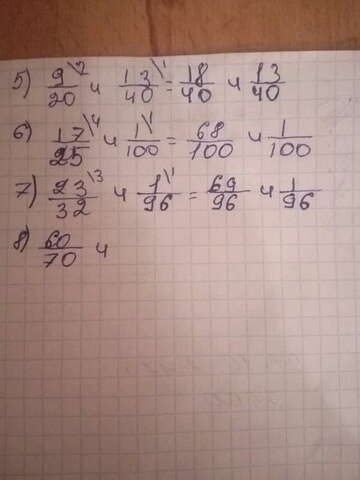 5) 9/20 \2 и 13/40 \1 = 18/40 и 13/40
6) 17/25 \4 и 1/100 \1 = 68/100 и 1/100
7) 23/32 \3 и 1/96 \1 = 69/96 и 1/96
8) 60/70 и